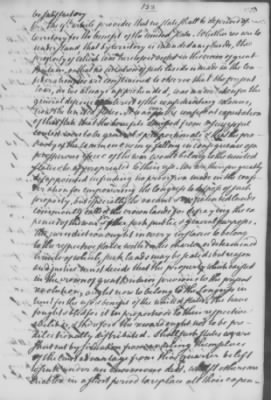 be satisfactory
The 9th article provides that no State shall be deprived of
territory for the benefit of the United States. Whether we are to
understand that by territory is intended any lands, the
property of which was heretofore vested in the crown of great
Britain, or that no
we are constrained to observe that the present
war, as we always apprehended, was undertaken on the
general defence and interest of the confederating colonies,
now the United States. It was ever the confident expectation
of this State, that the benefits derived from a successful
contest were to be general and proportionate & that the pro-
perty of the common enemy, falling in consequence of a
prosperous issue of the war, would belong to the united
States, or be appropriated to their use. We are therefore greatly
disappointed in finding no provision made in the con-
federation for empowering the Congress to dispose of such
property, but especially the vacant and impatented lands
commonly called the crown lands for defraying the ex-
pences of the war & for other such public & general purposes.
The jurisdiction ought in every instance to belong
to the respective States within the charter or determined
limits of which such lands may be seated, but reason
and justice must decide that the property which existed
in the crown of great Britain previous to the present
revolution, ought now to belong to the Congress in
trust for the use & benefit of the united States. They have
fought & bled for it in proportion to their respective
abilities & therefore the reward ought not to be pre-
dilectionally distributed. Shall such States as are
shut out by situation from availing themselves
of the least advantage from this quarter be left
to sink under an enormous debt, whilst others are
enabled in a short period to replace all their expen-